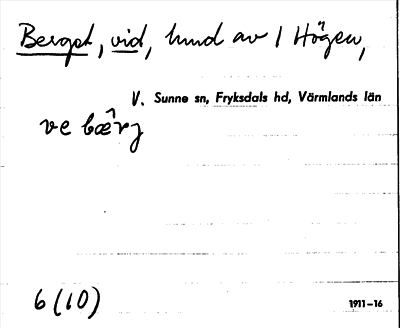 Berget, vid, hmd av 1 Högen,
V. Sunne sn, Fryksdals hd, Värmlands län
ve bærj
6 (10)
1911-16